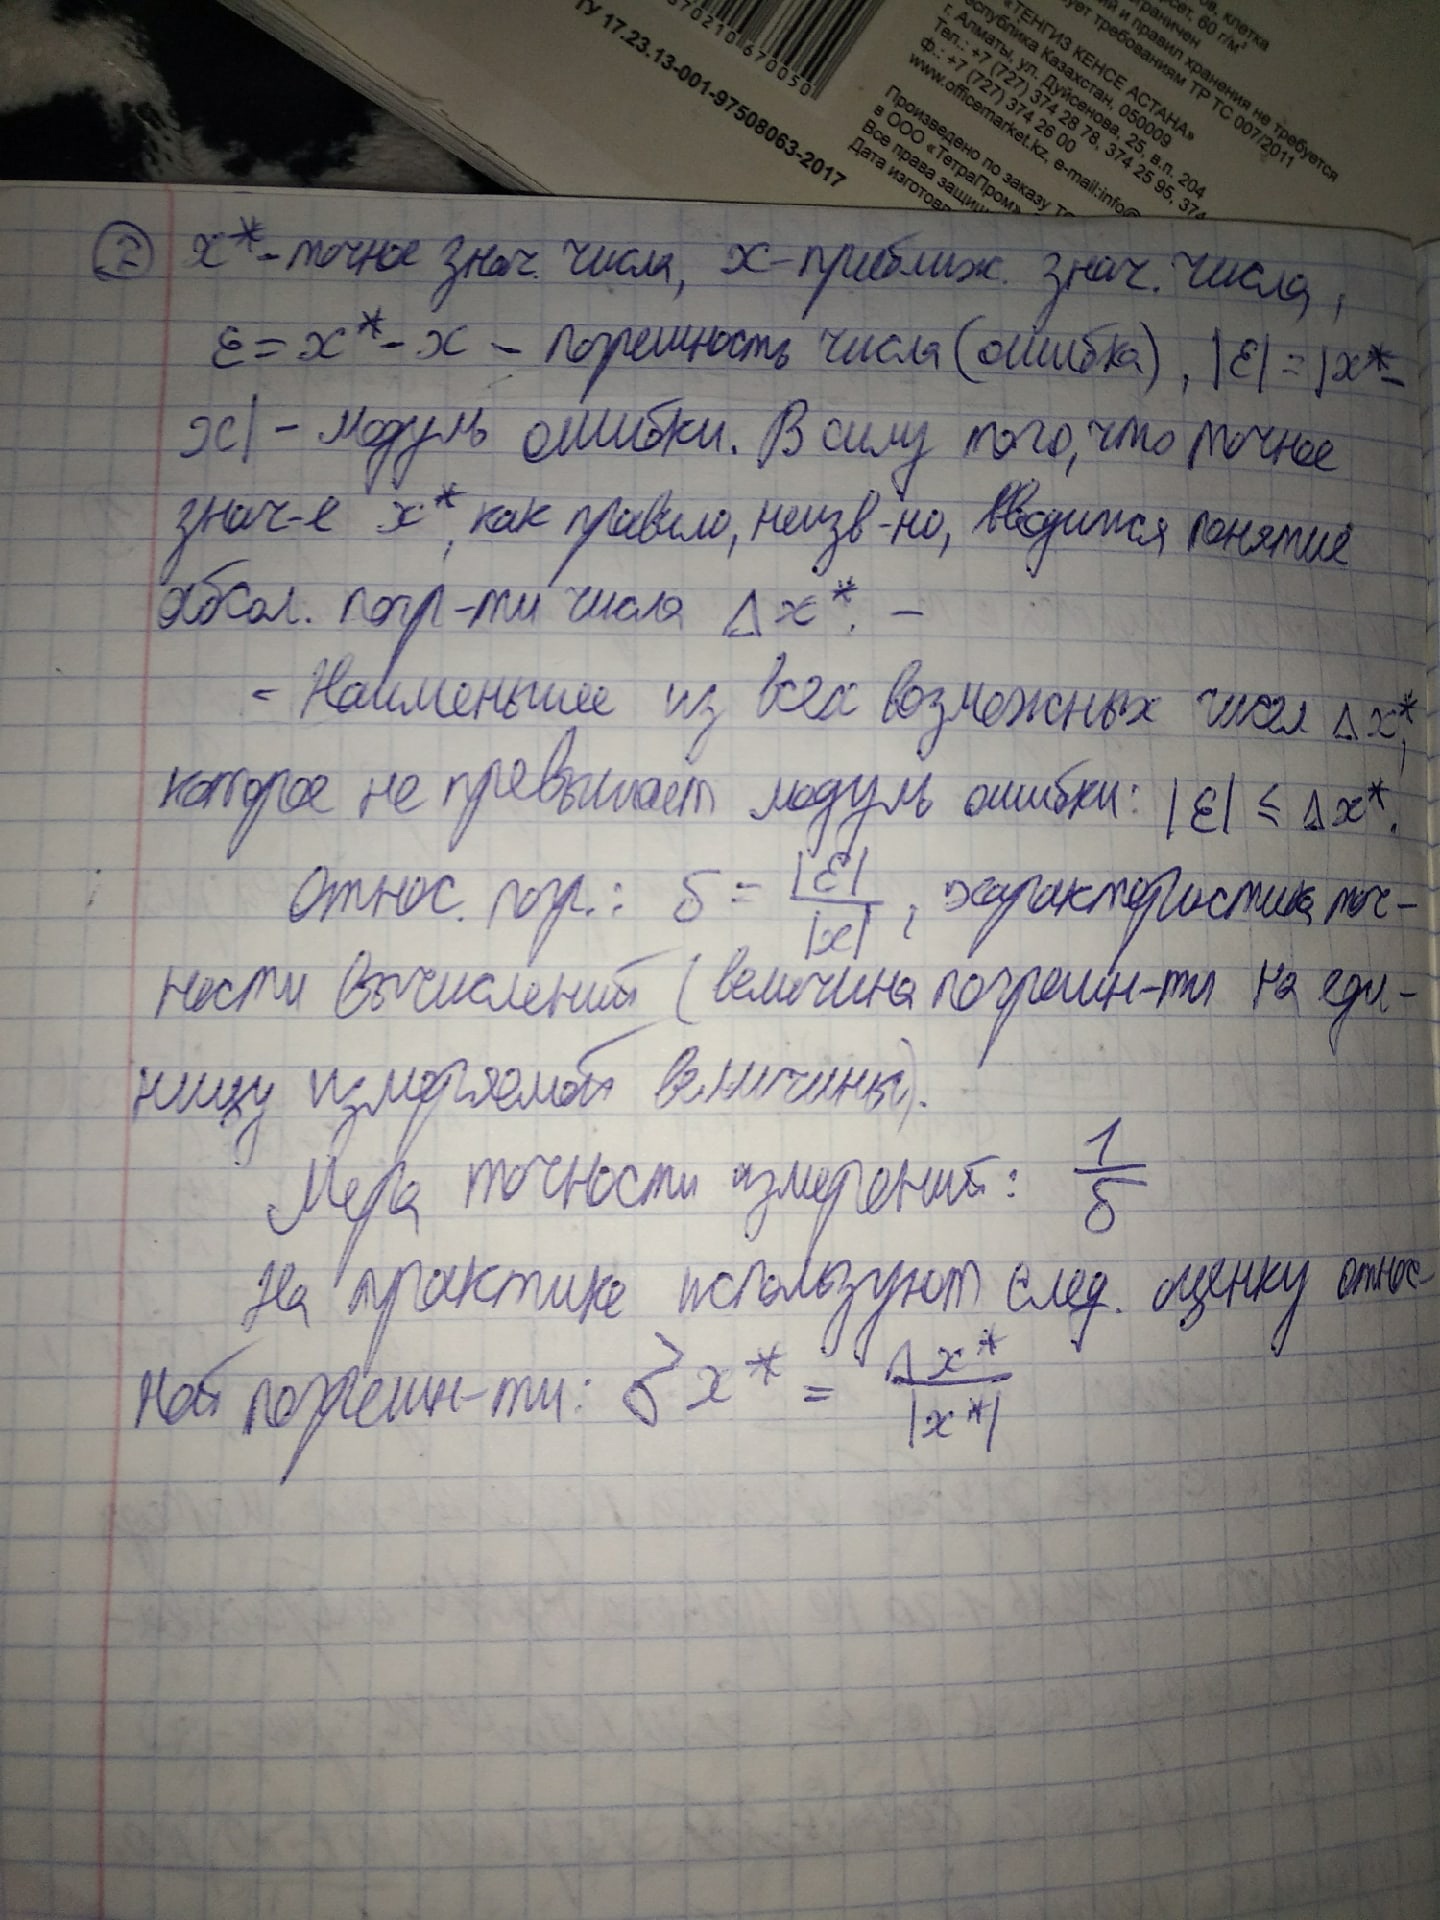 ов, клетка
сет, 60 г/м²
ограничен
ий и правил хранения не требуется
ует требованиям ТР ТС 007/2011
«ТЕНГИЗ КЕНСЕ АСТАНА»
еспублика Казахстан, 050009
г. Алматы, ул. Дуйсенова, 25, в.п. 204
Тел.: +7 (727) 374 28 78, 374 25 95, 374
Ф.: +7 (727) 374 26 00
www.officemarket.kz, e-mail:info@
Произведено по заказу ТО
в ООО «ТетраПром»
Все права защищ
Дата изготов
570210 670050
ТУ 17.23.13-001-97508063-2017
② x* - точное знач. числа, x - приближ. знач. числа,
ε = x* - x - погрешность числа (ошибка), |ε| = |x* -
x| - модуль ошибки. В силу того, что точное
знач-е x*, как правило, неизв-но, вводится понятие
абсол. погр-ти числа Δx*. -
- Наименьшее из всех возможных чисел Δx*,
которое не превышает модуль ошибки: |ε| ≤ Δx*.
Относ. погр.: δ = |ε| / |x| , характеристика точ-
ности вычислений (величина погрешн-ти на еди-
ницу измеряемой величины).
Мера точности измерений: 1/δ
На практике используют след. оценку относ-
ной погрешн-ти: δx* = Δx* / |x*|